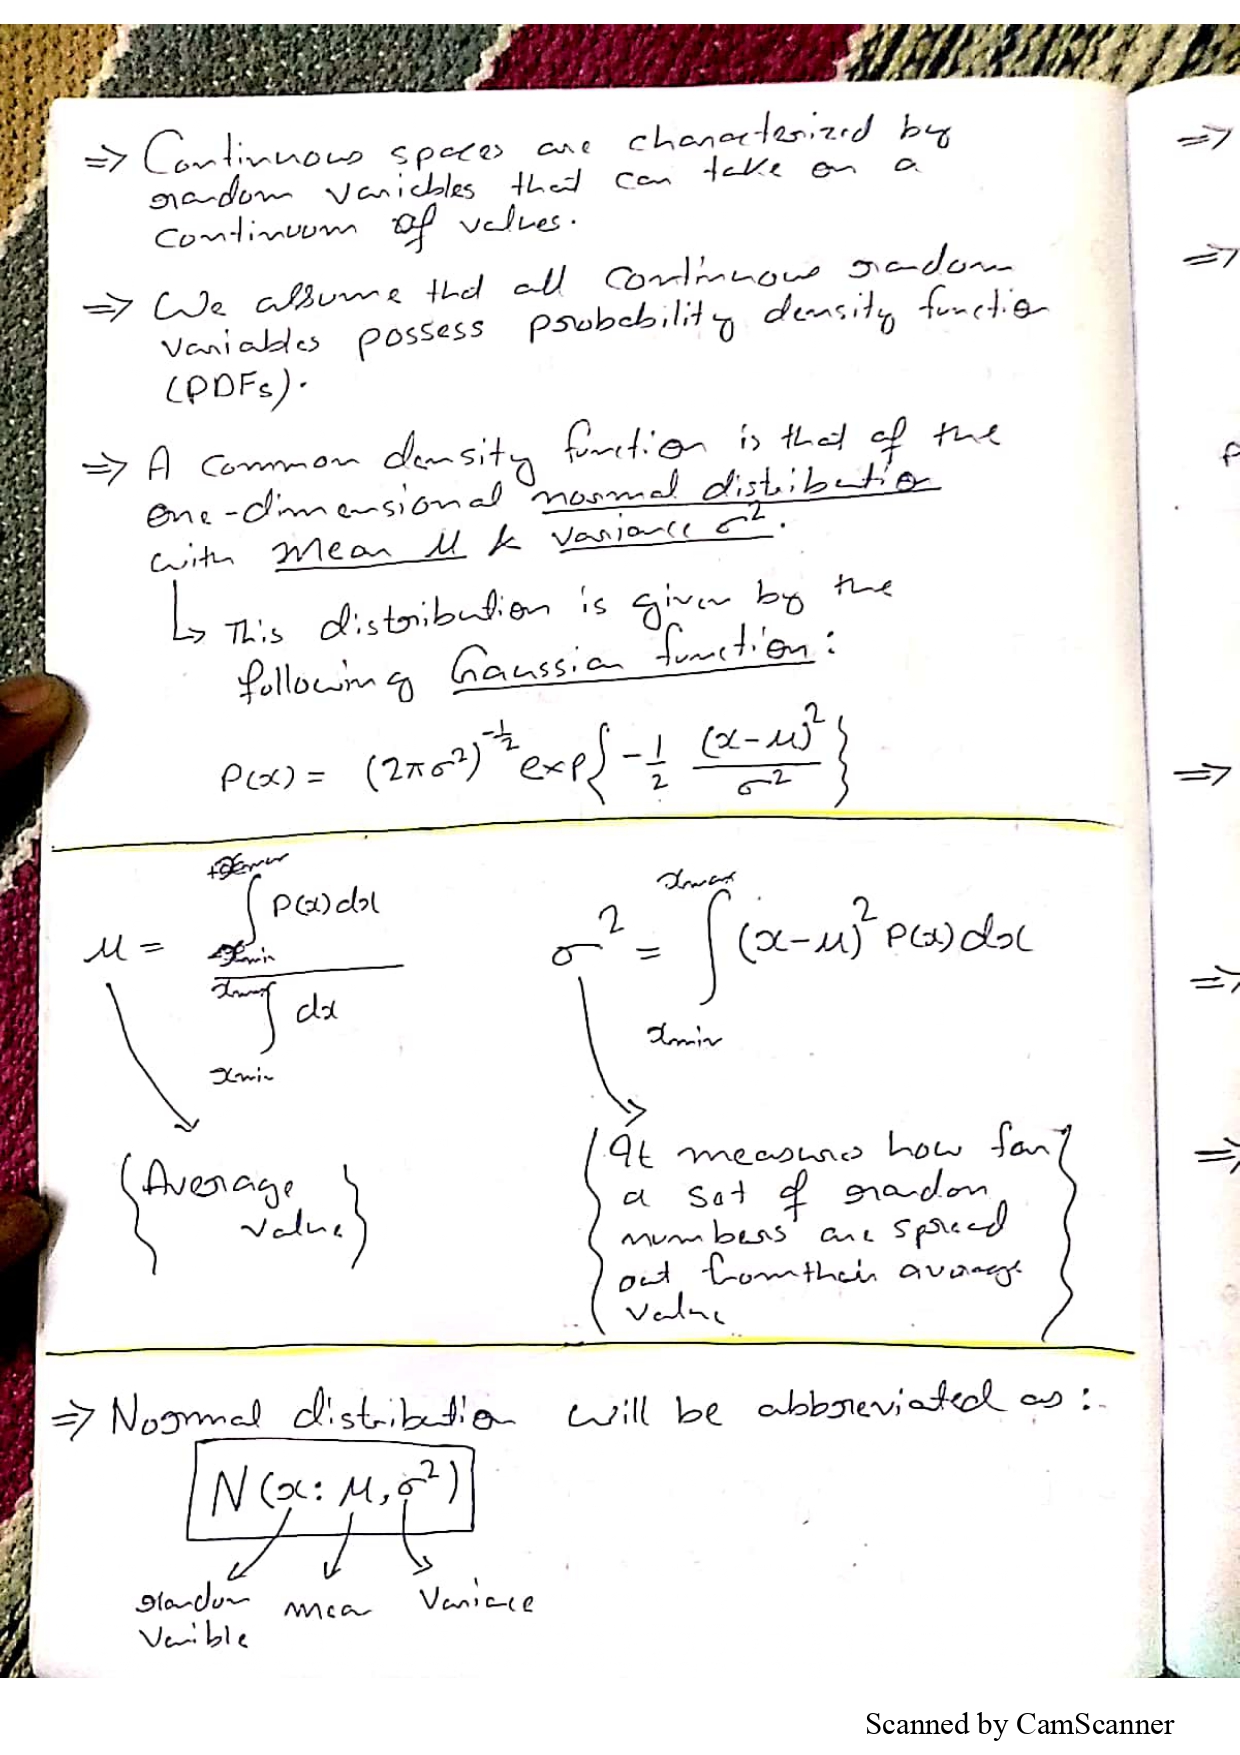 ⇒ Continuous spaces are characterized by
random variables that can take on a
continuum of values.
⇒ We assume that all continuous random
variables possess probability density function
(PDFs).
⇒ A common density function is that of the
one-dimensional normal distribution
with mean μ & variance σ².
↳ This distribution is given by the
following Gaussian function:
P(x) = (2πσ²)^{-1/2} exp{ -1/2 (x-μ)²/σ² }
μ = ∫_{xmin}^{xmax} P(x)dx / ∫_{xmin}^{xmax} dx
σ² = ∫_{xmin}^{xmax} (x-μ)² P(x)dx
{Average
value}
{It measures how far
a set of random
numbers are spread
out from their average
value}
⇒ Normal distribution will be abbreviated as:-
N(x: μ, σ²)
random mean Variace
Varible
⇒
⇒
P
⇒
⇒
⇒
Scanned by CamScanner